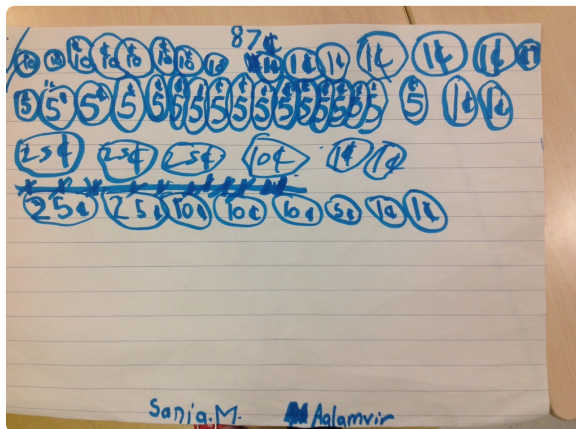 87¢
10 10 10 10 10 10 10 10 1¢ 1¢ 1¢ 1¢ 1¢ 1¢
5 5¢ 5¢ 5¢ 5¢ 5 5 5 5 5 5 5 5 5 5 5 1¢ 1¢
25¢ 25¢ 25¢ 10¢ 1¢ 1¢
25¢ 25¢ 10¢ 10¢ 10¢ 5¢ 1¢ 1¢
Sania.M. Aalamvir